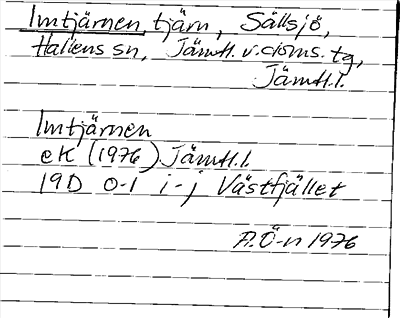 Imtjärnen, tjärn, Sällsjö,
Hallens sn, Jämtl. v. doms. tg,
Jämtl. l.
Imtjärnen
eK (1976) Jämtl. l.
19D 0-1 i-j Västfjället
A.Ö-n 1976